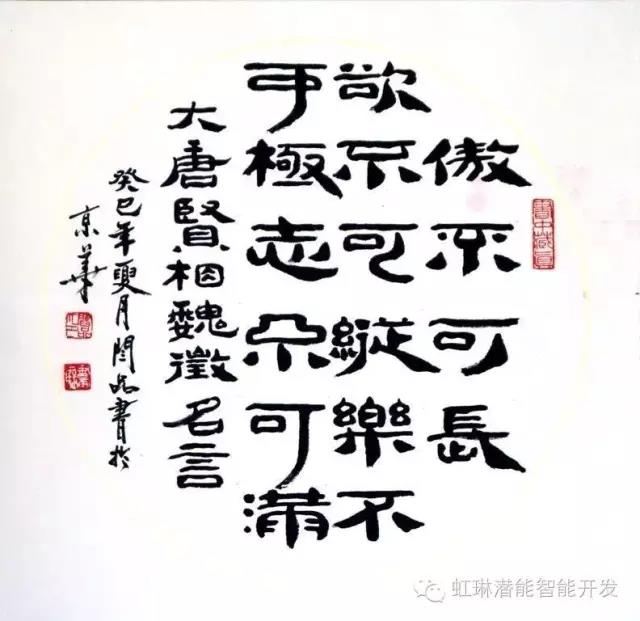 傲不可長
欲不可縱樂不
可極志不可滿
大唐賢相魏徵名言
癸巳年夏月閆品書於
京華
虹琳潜能智能开发